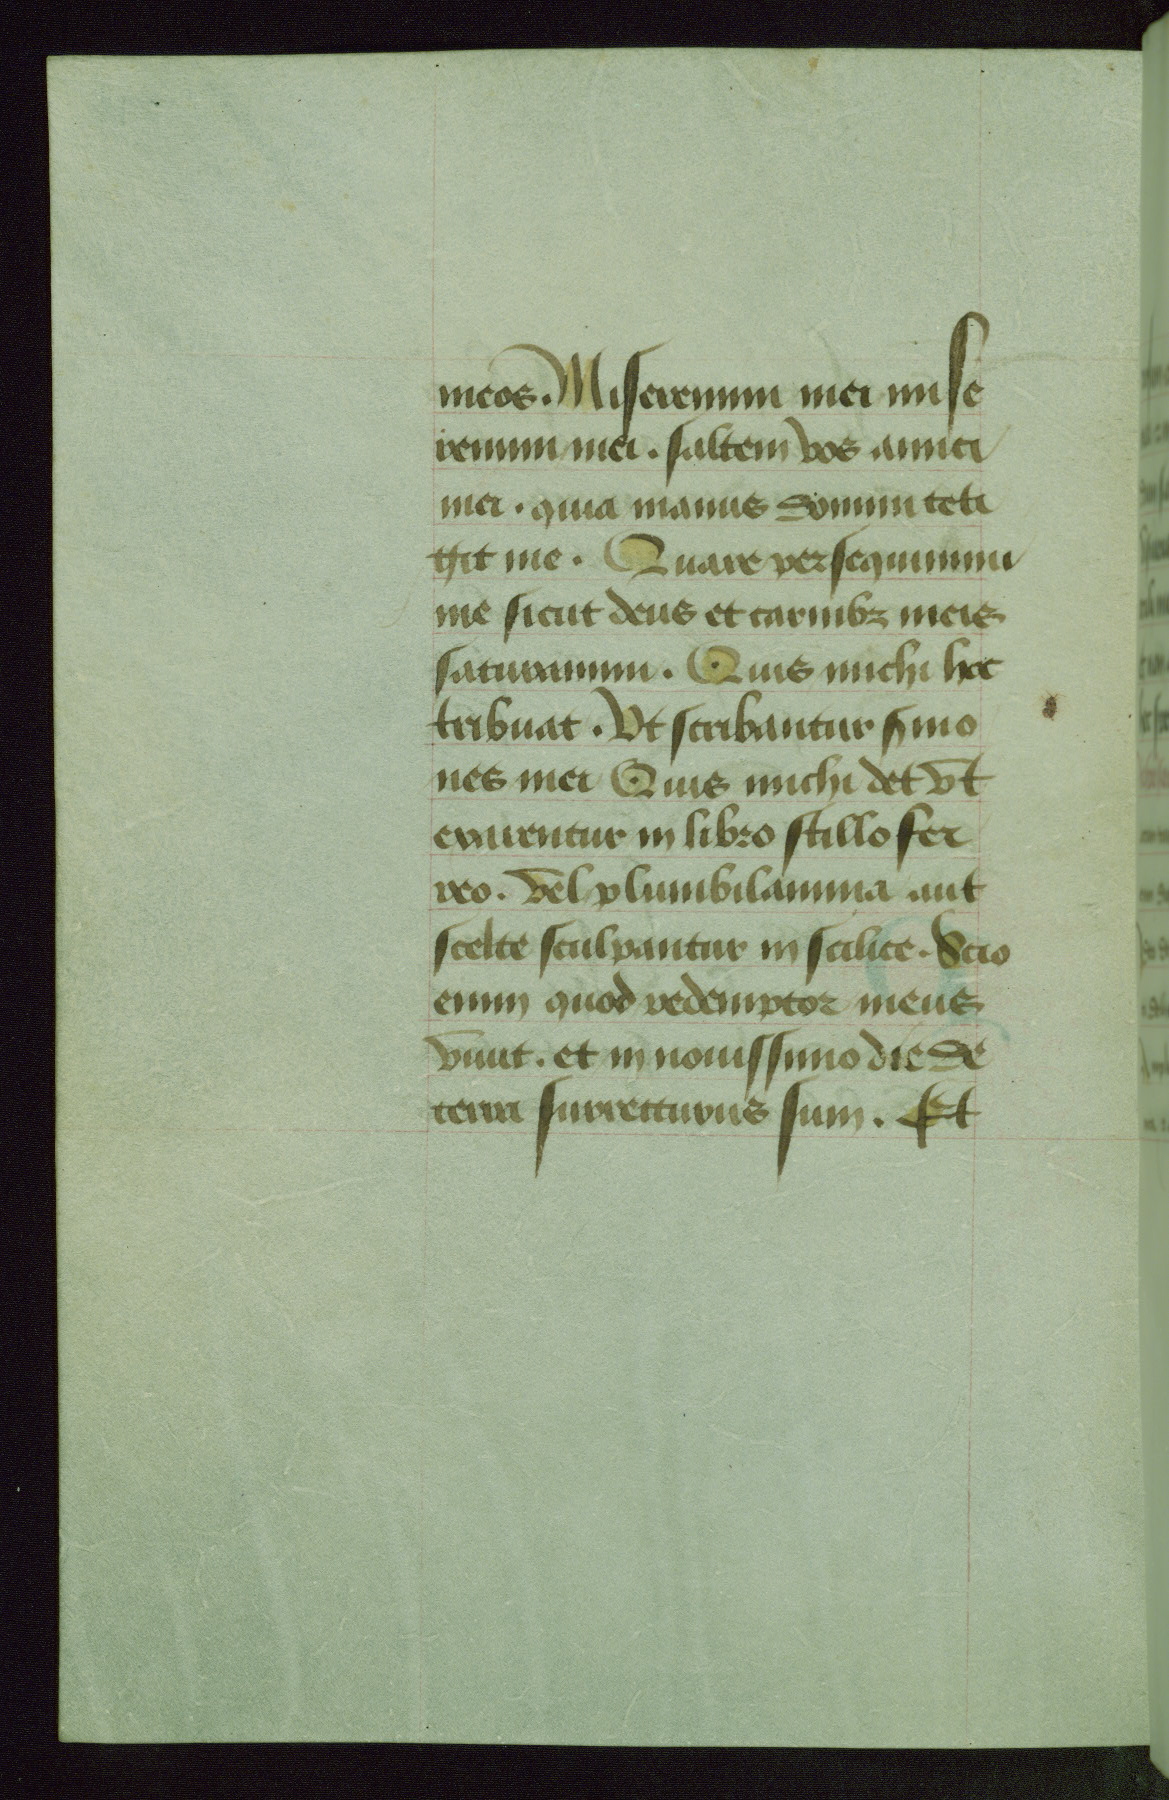 meos. Miseremini mei mise
remini mei. saltem vos amici
mei. quia manus domini teti
git me. Quare persequimini
me sicut deus et carnibz meis
saturamini. Quis michi hoc
tribuat. Vt scribantur smo
nes mei Quis michi det vt
exarentur in libro stillo fer
reo. vel plumbilamina aut
scelte sculpantur in scilice. Scio
enim quod redemptor meus
viuit. et in nouissimo die de
terra surrecturus sum. Et